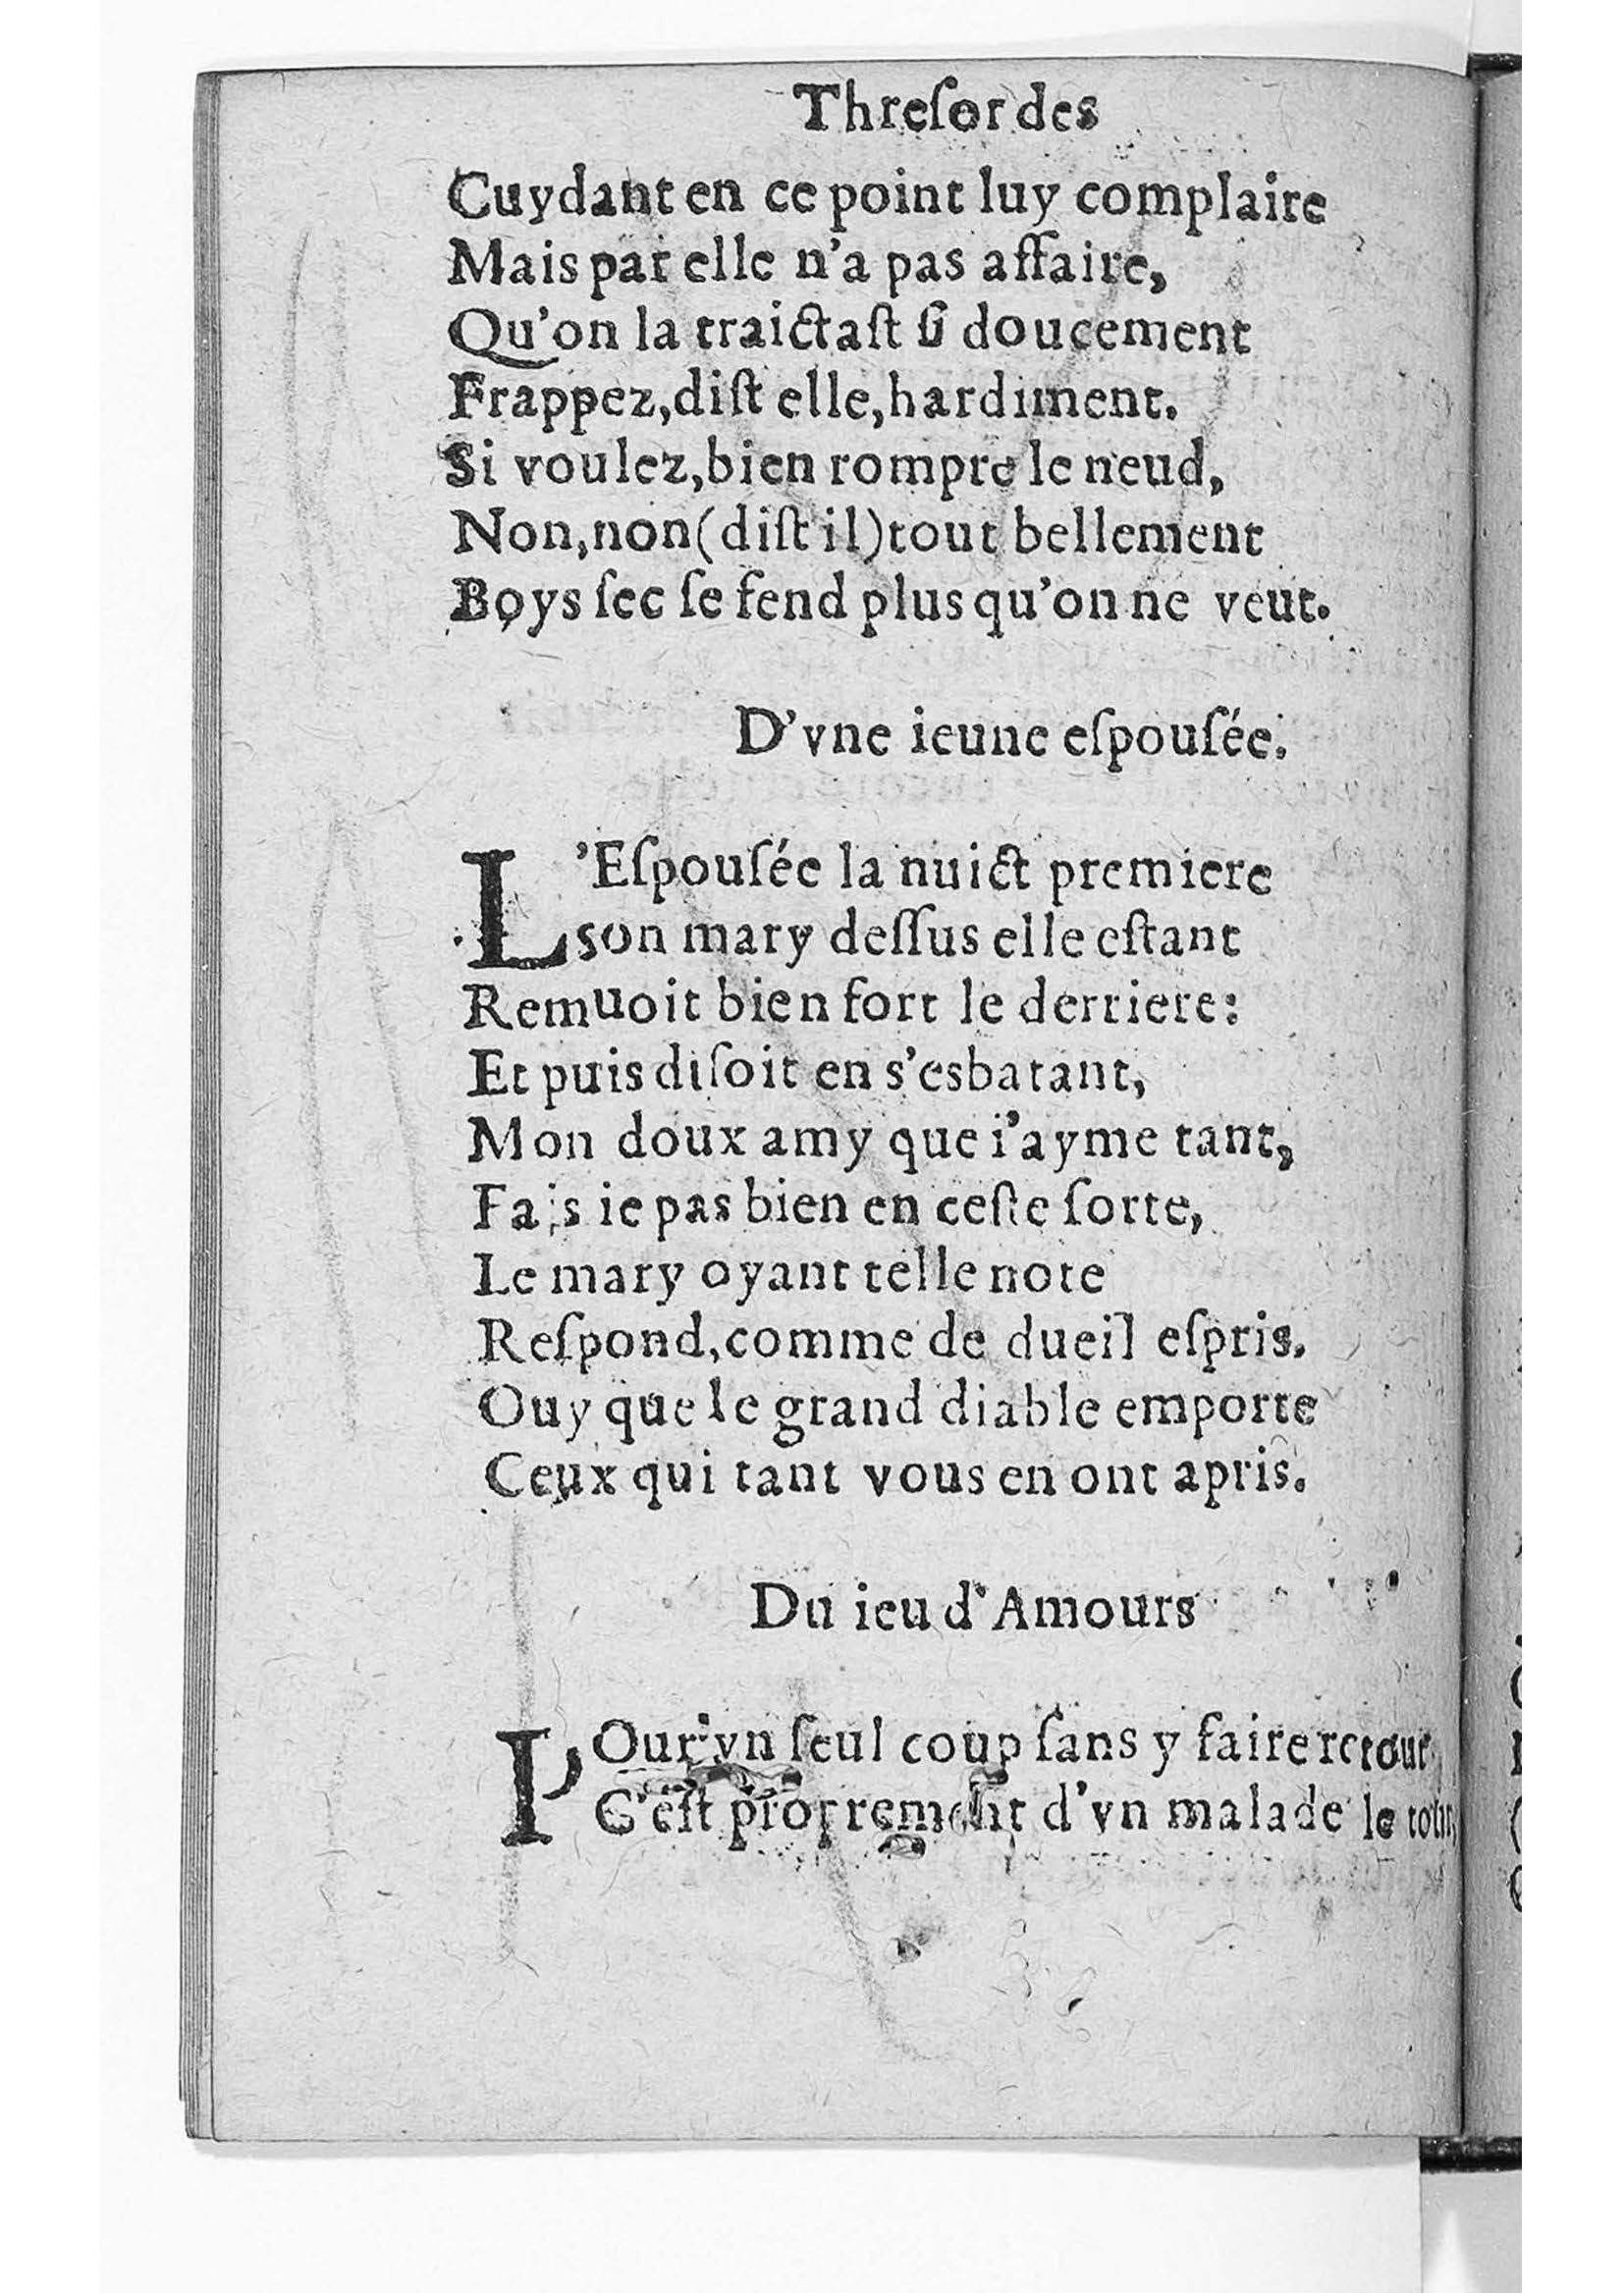 Threſor des
Cuydant en ce point luy complaire
Mais par elle n'a pas affaire,
Qu'on la traictaſt ſi doucement
Frappez, diſt elle, hardiment.
Si voulez, bien rompre le neud,
Non, non (diſt il) tout bellement
Boys ſec ſe fend plus qu'on ne veut.
D'vne ieune eſpouſée.
L'Eſpouſée la nuict premiere
son mary deſſus elle eſtant
Remuoit bien fort le derriere:
Et puis diſoit en s'esbatant,
Mon doux amy que i'ayme tant,
Fais ie pas bien en ceſte ſorte,
Le mary oyant telle note
Reſpond, comme de dueil eſpris.
Ouy que le grand diable emporte
Ceux qui tant vous en ont apris.
Du ieu d'Amours
POur vn ſeul coup ſans y faire retour
C'eſt proprement d'vn malade le tour,